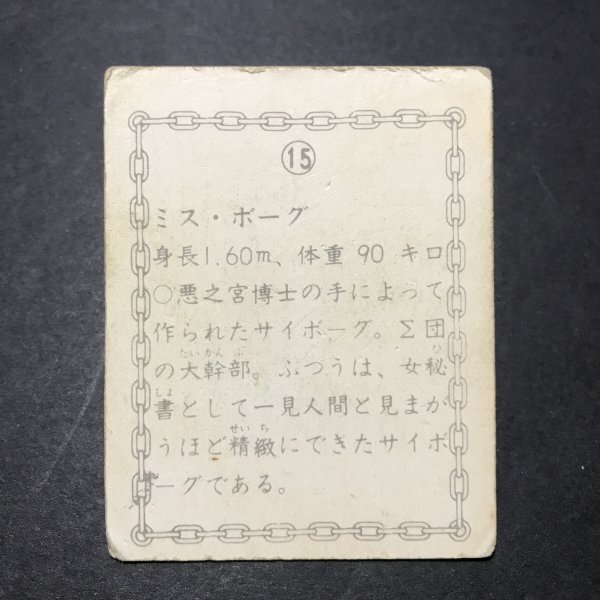 ⑮
ミス・ボーグ
身長1.60m、体重90キロ
○悪之宮博士の手によって
作られたサイボーグ。Σ団
の大幹部。ふつうは、女秘
書として一見人間と見まが
うほど精緻にできたサイボ
ーグである。